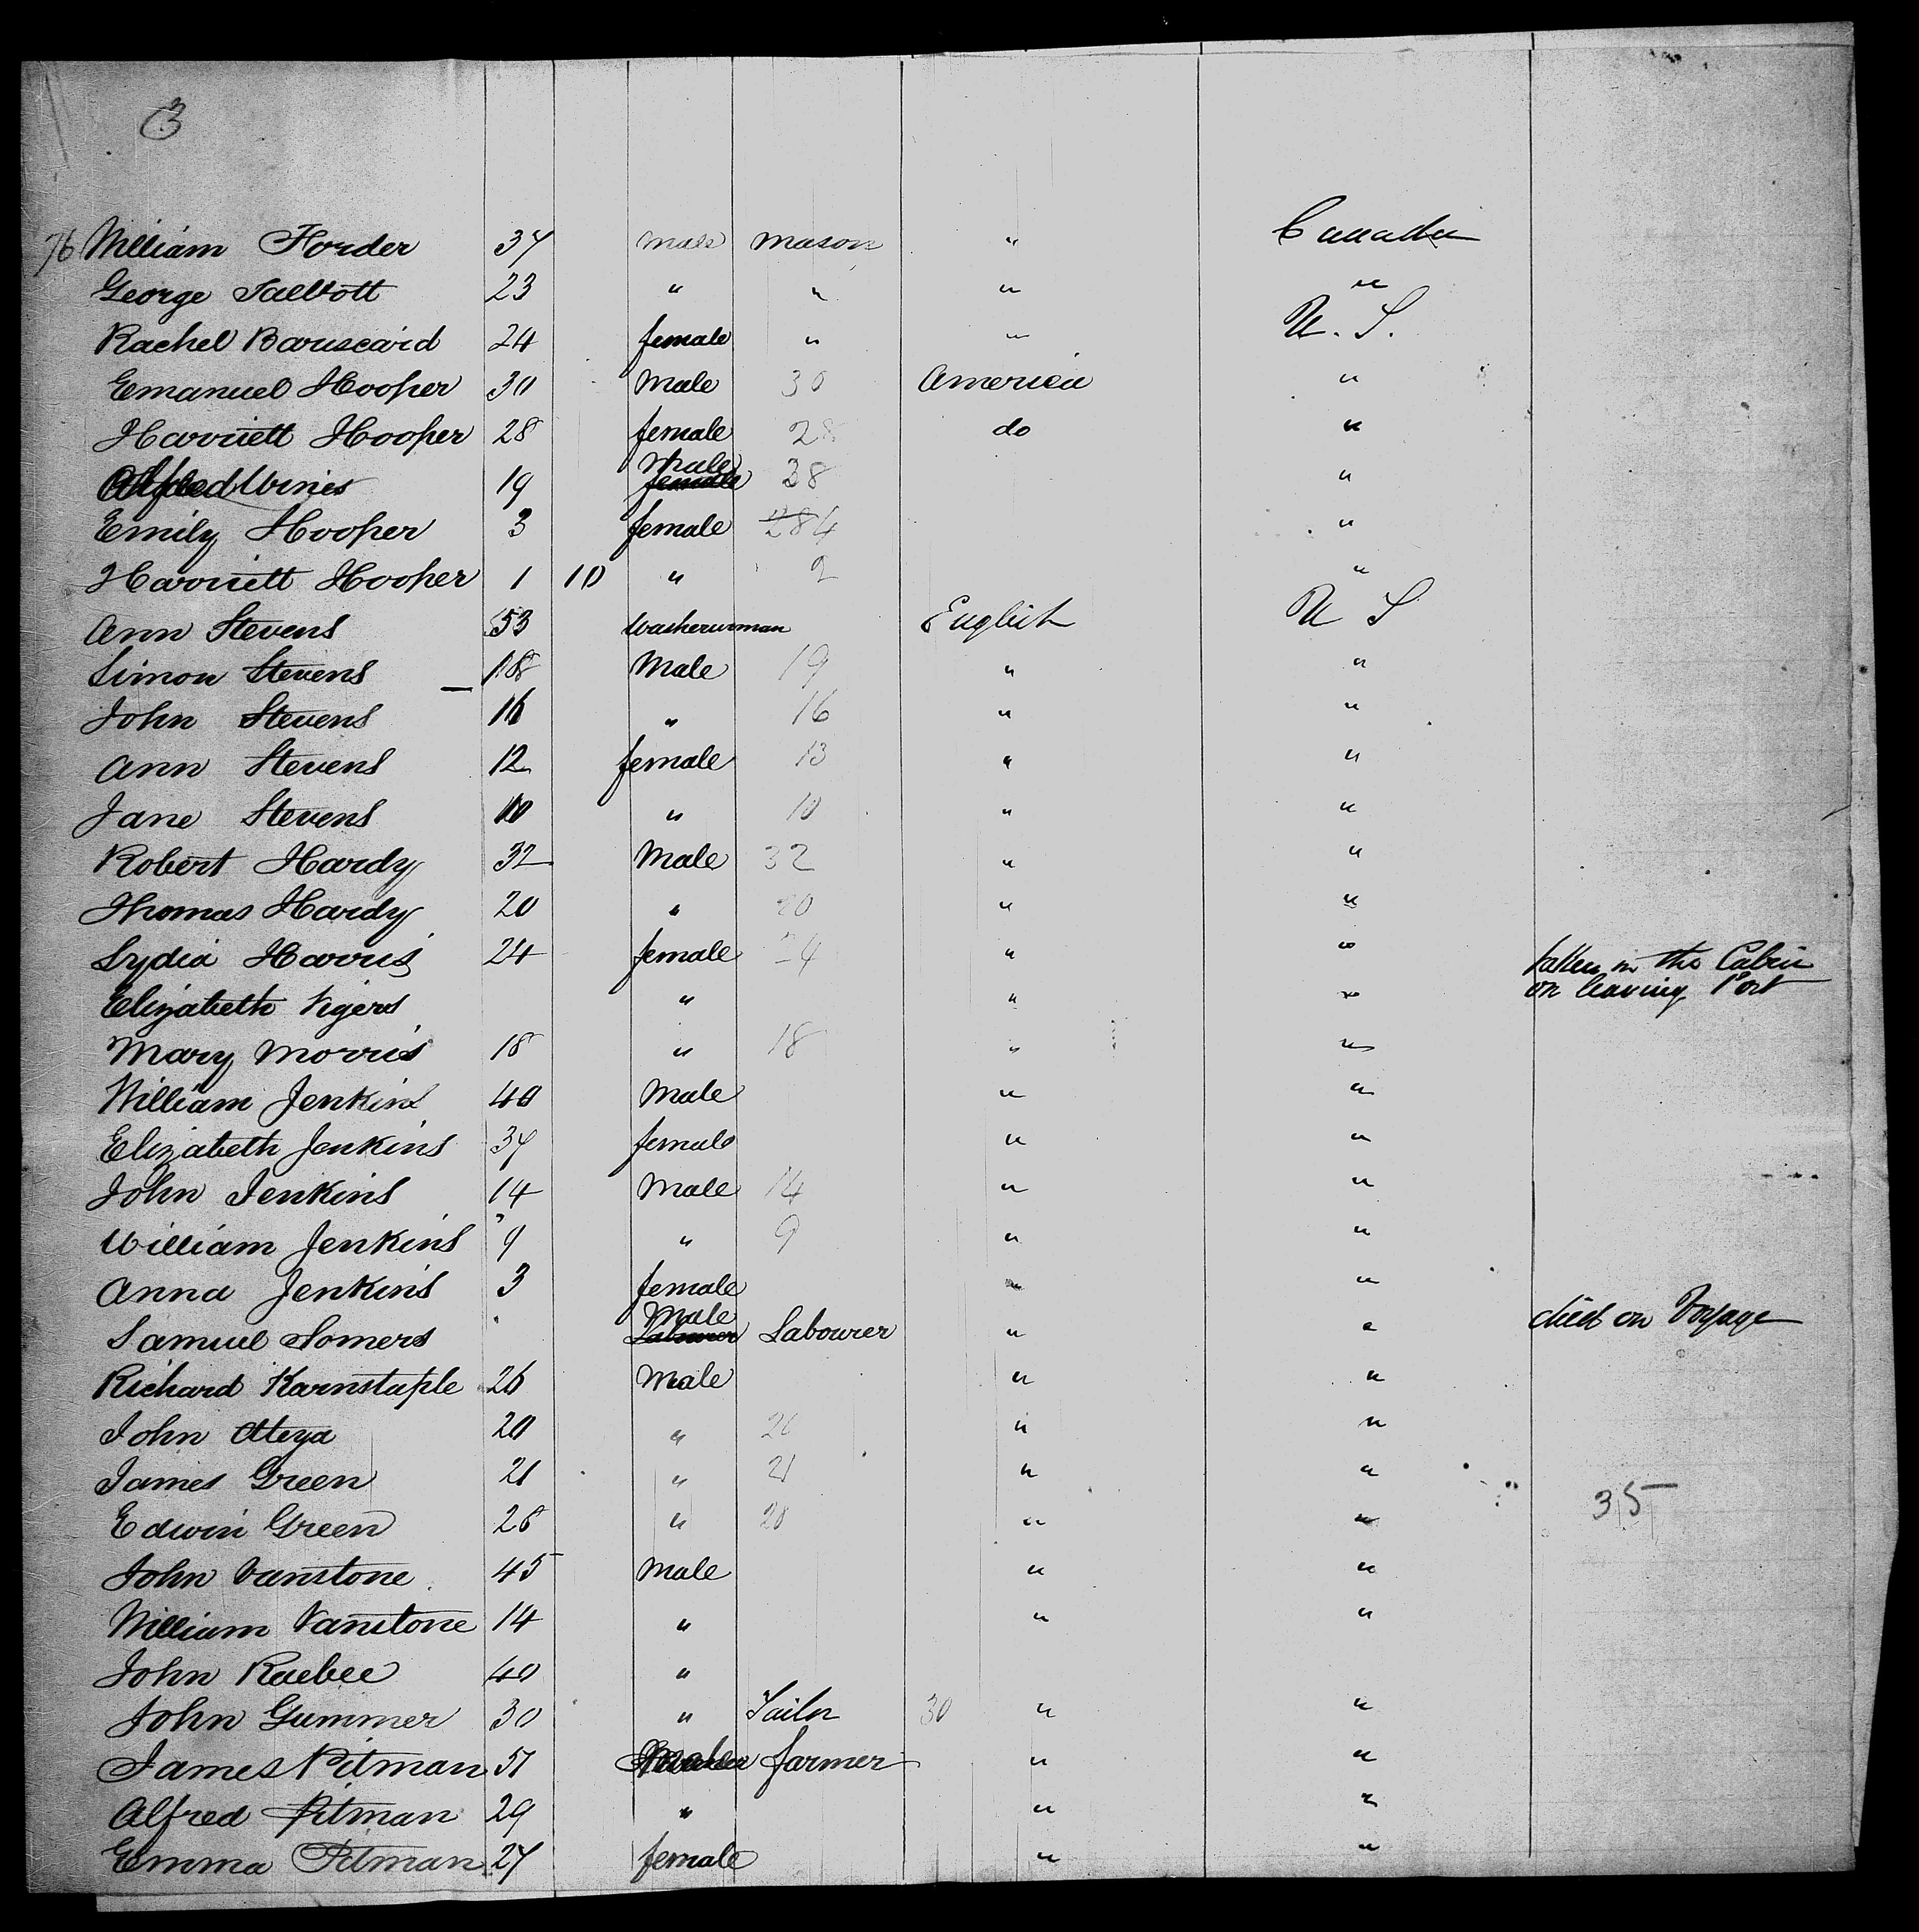 3
76 William Forder 37 male mason " Canada
George Talbott 23 " " " "
Rachel 24 female " " U. S.
Emanuel Hooper 30 Male 30 America "
Harriett Hooper 28 female 28 do "
Alfred Vines 19 male female 38 "
Emily Hooper 3 female 28 4 "
Harriett Hooper 1 10 " 2 "
Ann Stevens 53 Washerwoman English U S
Simon Stevens 18 Male 19 " "
John Stevens 16 " 16 " "
Ann Stevens 12 female 13 " "
Jane Stevens 10 " 10 " "
Robert Hardy 32 Male 32 " "
Thomas Hardy 20 " 20 " "
Lydia Harris 24 female 24 " " taken in the Cabin
Elizabeth Vigers " " " on leaving Port
Mary Morris 18 " 18 " "
William Jenkins 40 Male " "
Elizabeth Jenkins 37 female " "
John Jenkins 14 Male 14 " "
William Jenkins 9 " 9 " "
Anna Jenkins 3 female " "
Samuel Somers Male Labourer Labourer " " died on Voyage
Richard Karnstaple 26 Male " "
John Ateya 20 " 20 " "
James Green 21 " 21 " "
Edwin Green 28 " 28 " " 35
John Vanstone 45 Male " "
William Vanstone 14 " " "
John Raebee 40 "
John Gummer 30 " Tailor 30 " "
James Pitman 51 farmer " "
Alfred Pitman 29 " " "
Emma Pitman 27 female " "